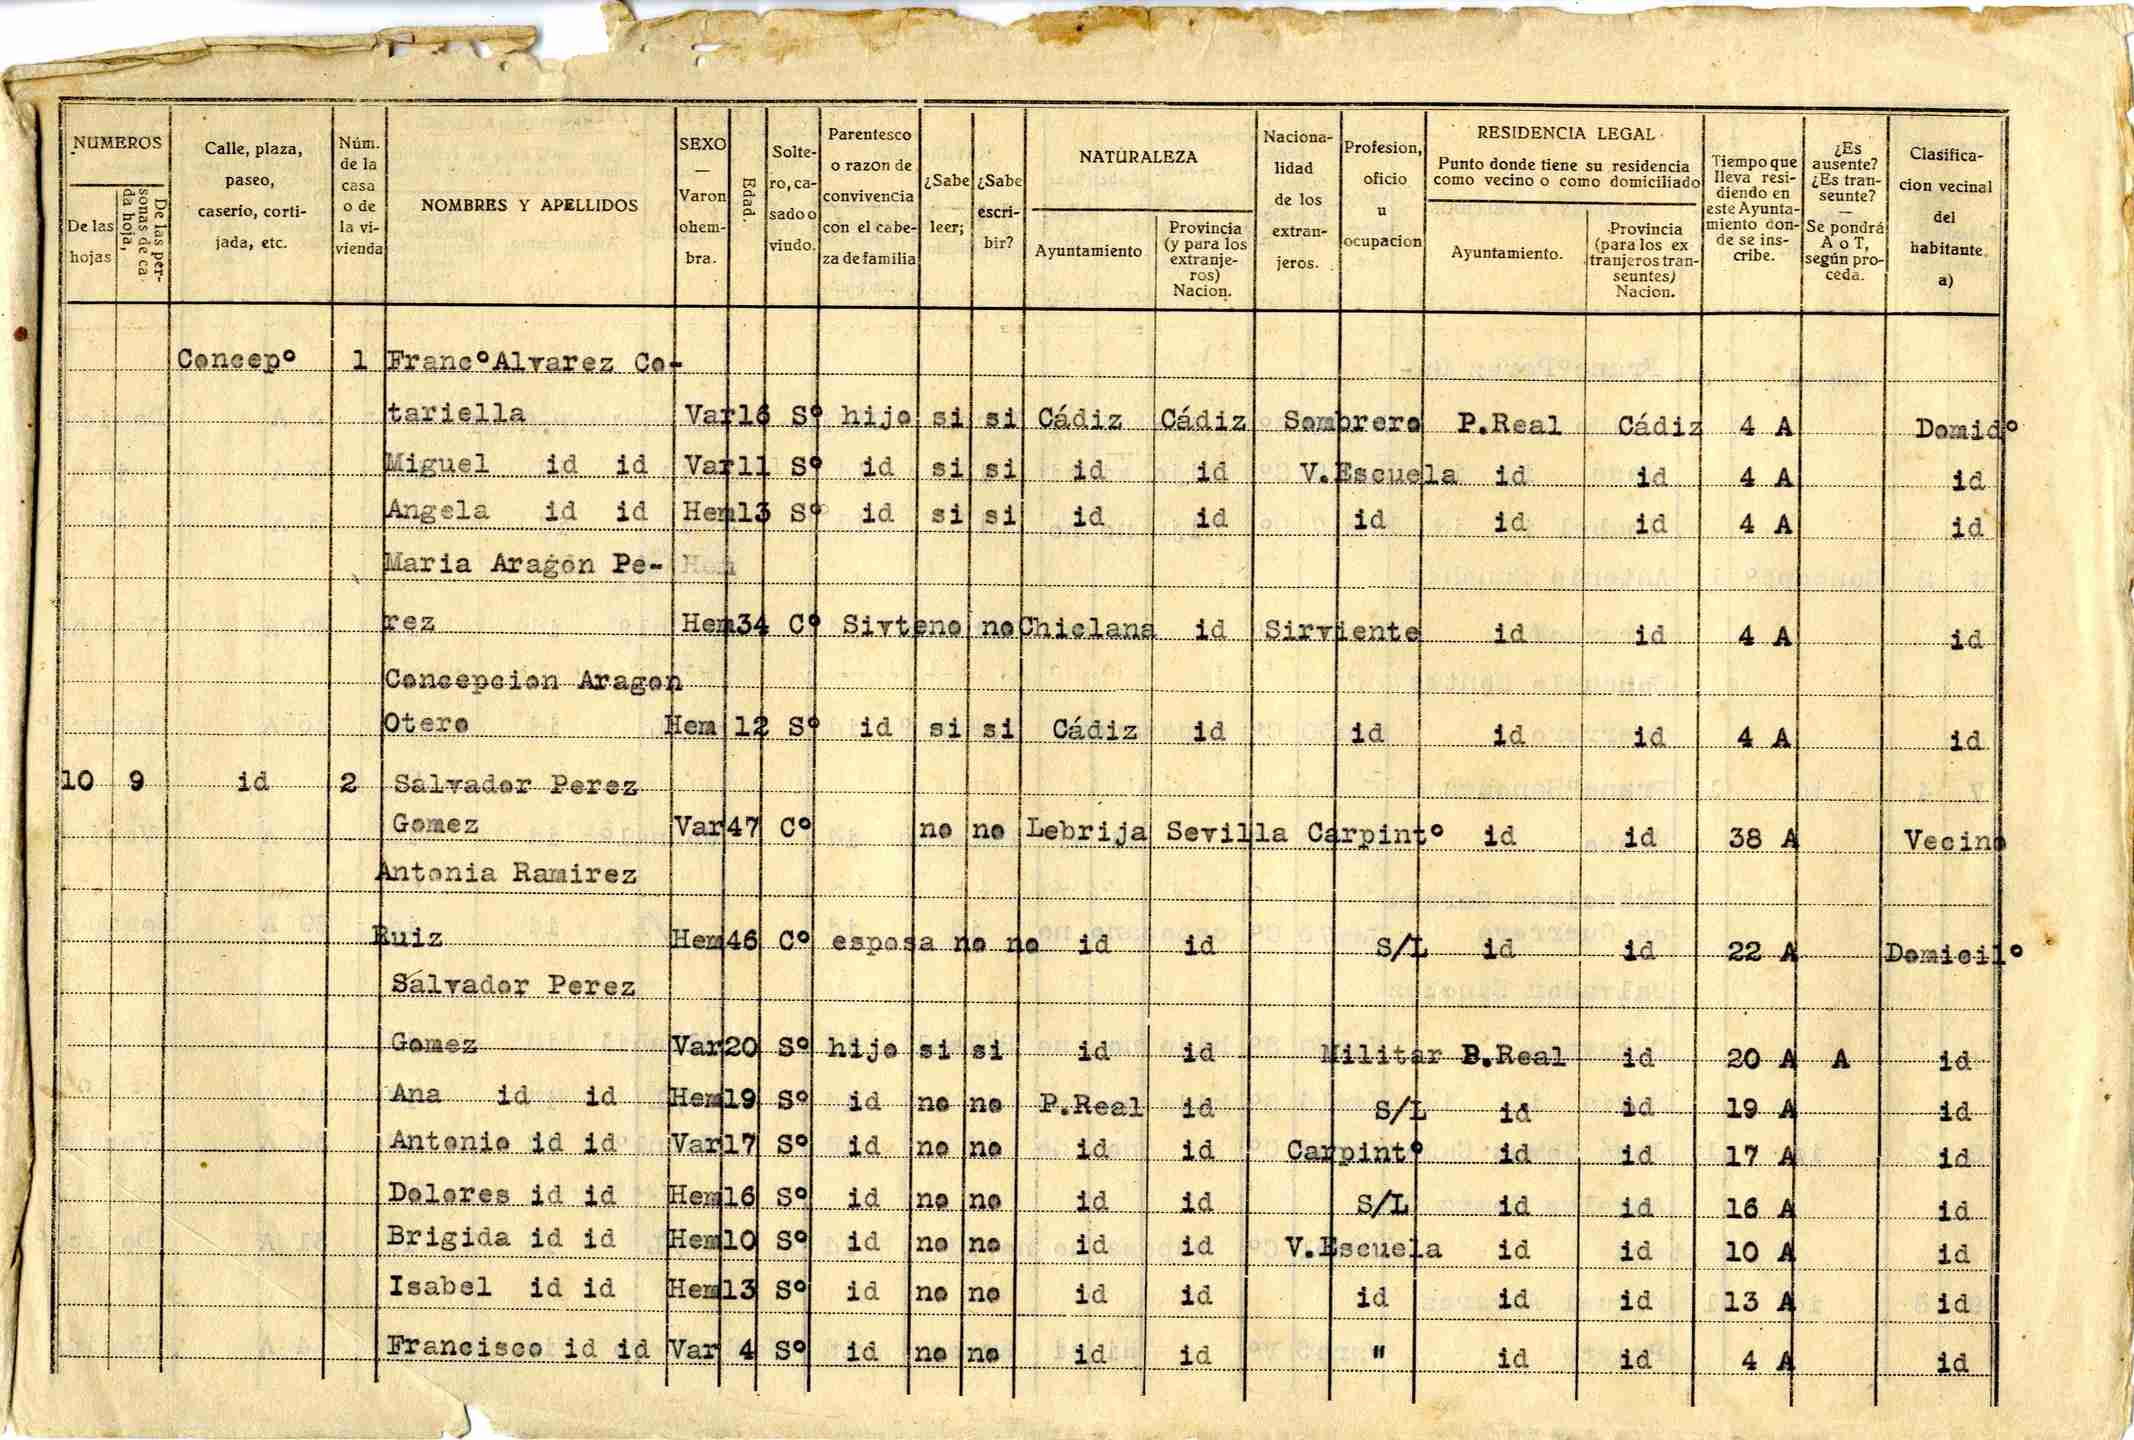 NUMEROS
De las hojas
De las personas de cada hoja,
Calle, plaza, paseo, caserio, cortijada, etc.
Núm. de la casa o de la vivienda
NOMBRES Y APELLIDOS
SEXO — Varon ohembra.
Edad.
Soltero, casado o viudo.
Parentesco o razon de convivencia con el cabeza de familia
¿Sabe leer;
¿Sabe escribir?
NATURALEZA
Ayuntamiento
Provincia (y para los extranjeros) Nacion.
Nacionalidad de los extranjeros.
Profesion, oficio u ocupacion
RESIDENCIA LEGAL
Punto donde tiene su residencia como vecino o como domiciliado
Ayuntamiento.
Provincia (para los extranjeros transeuntes) Nacion.
Tiempo que lleva residiendo en este Ayuntamiento donde se inscribe.
¿Es ausente? ¿Es transeunte? — Se pondrá A o T, según proceda.
Clasificacion vecinal del habitante a)
Concepº 1 FrancºAlvarez Co-
tariella Var 16 Sº hijo si si Cádiz Cádiz Sombrero P.Real Cádiz 4 A Domidº
Miguel id id Var 11 Sº id si si id id V.Escuela id id 4 A id
Angela id id Hem 13 Sº id si si id id id id id 4 A id
Maria Aragón Pe- Hem
rez Hem 34 Cº Sivte no no Chiclana id Sirviente id id 4 A id
Concepcion Aragon
Otero Hem 12 Sº id si si Cádiz id id id id 4 A id
10 9 id 2 Salvador Perez
Gomez Var 47 Cº no no Lebrija Sevilla Carpintº id id 38 A Vecino
Antonia Ramirez
Ruiz Hem 46 Cº esposa no no id id S/L id id 22 A Domicilº
Salvador Perez
Gomez Var 20 Sº hijo si si id id Militar P.Real id 20 A A id
Ana id id Hem 19 Sº id no no P.Real id S/L id id 19 A id
Antonio id id Var 17 Sº id no no id id Carpintº id id 17 A id
Dolores id id Hem 16 Sº id no no id id S/L id id 16 A id
Brigida id id Hem 10 Sº id no no id id V.Escuela id id 10 A id
Isabel id id Hem 13 Sº id no no id id id id id 13 A id
Francisco id id Var 4 Sº id no no id id " id id 4 A id